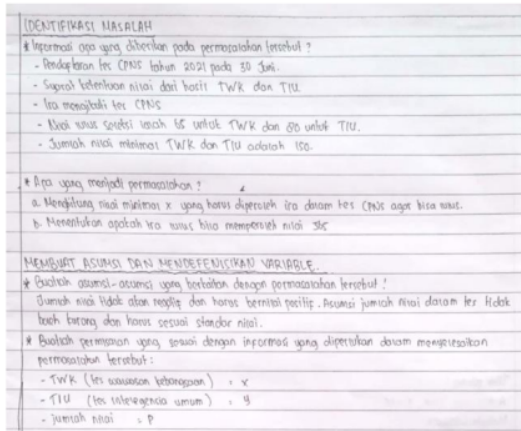 IDENTIFIKASI MASALAH
* Informasi apa yang diberikan pada permasalahan tersebut ?
- Pendaftaran tes CPNS tahun 2021 pada 30 Juni.
- Syarat ketentuan nilai dari hasil TWK dan TIU.
- Ira mengikuti tes CPNS
- Nilai lulus seleksi ialah 65 untuk TWK dan 80 untuk TIU.
- Jumlah nilai minimal TWK dan TIU adalah 150.
* Apa yang menjadi permasalahan ?
a. Menghitung nilai minimal x yang harus diperoleh ira dalam tes CPNS agar bisa lulus.
b. Menentukan apakah ira lulus bila memperoleh nilai 365
MEMBUAT ASUMSI DAN MENDEFENISIKAN VARIABLE.
* Buatlah asumsi-asumsi yang berkaitan dengan permasalahan tersebut !
Jumlah nilai tidak akan negatif dan harus bernilai positif. Asumsi jumlah nilai dalam tes tidak
boleh kurang dan harus sesuai standar nilai.
* Buatlah permisalan yang sesuai dengan informasi yang diperlukan dalam menyelesaikan
permasalahan tersebut :
- TWK (tes wawasan kebangsaan) = x
- TIU (tes intelegencia umum) = y
- jumlah nilai = p